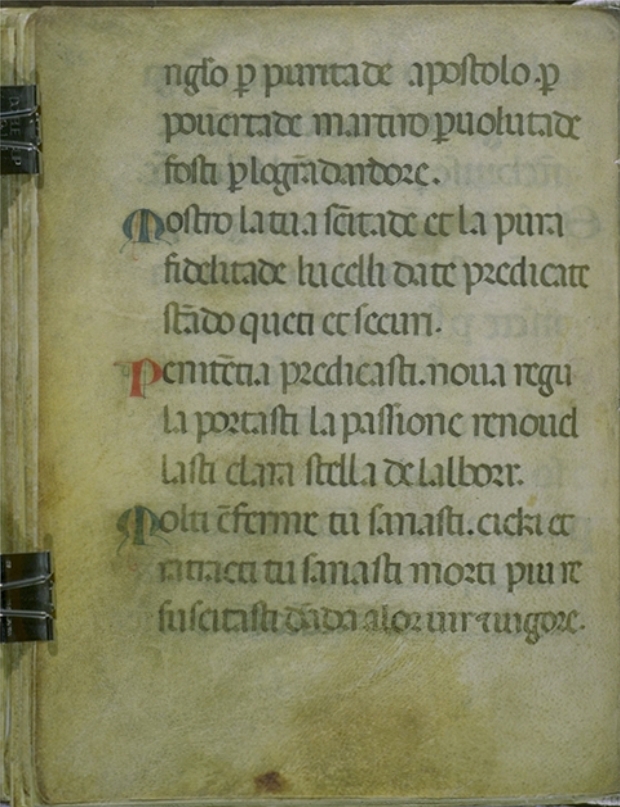 nglo ꝑ puritade apostolo.ꝑ
pouertade martiro ꝑuolutade
fosti ꝑ logrādardore.
Mostro la tua scītade et la pura
fidelitade lucelli date predicate
stādo queti et securi.
Penitētia predicasti.noua regu
la portasti la passione renouel
lasti clara stella de lalbore.
Molti ēferme tu sanasti.cicki et
ratracti tu sanasti morti piu re
suscitasti dādo a lor uita ⁊ uigore.